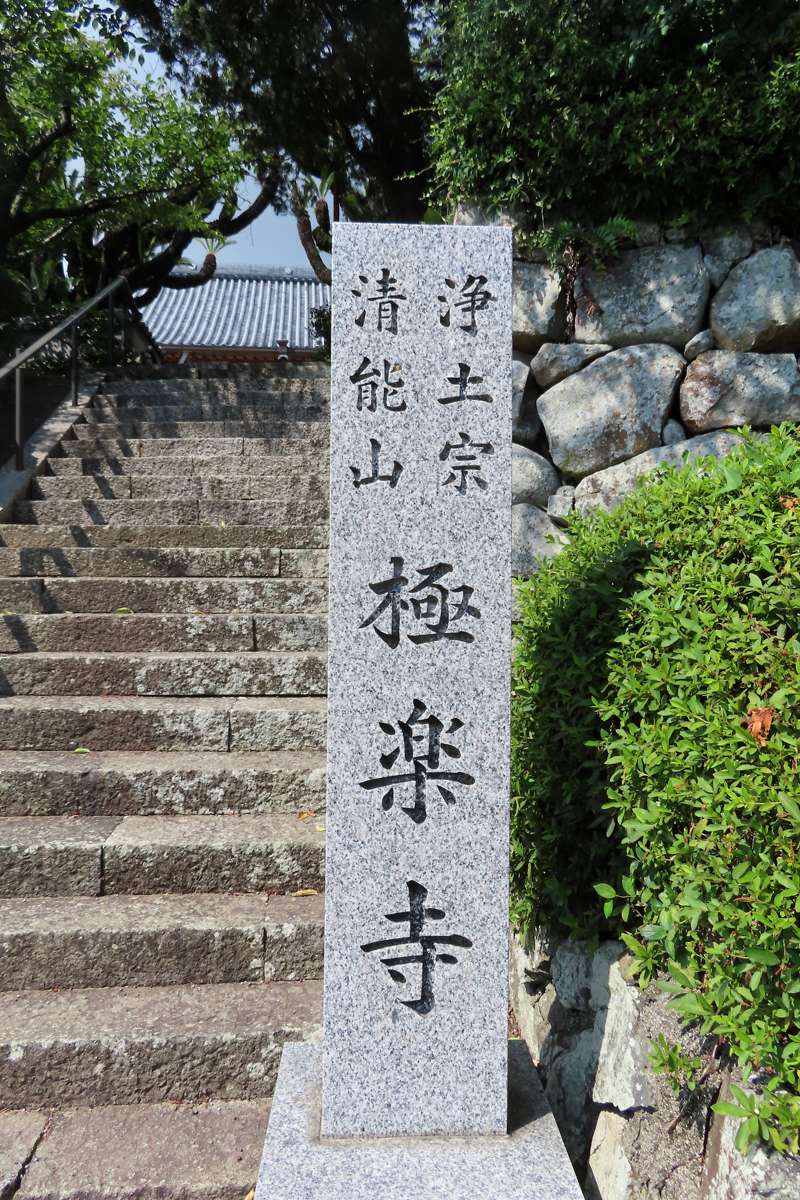 浄土宗
清能山
極楽寺